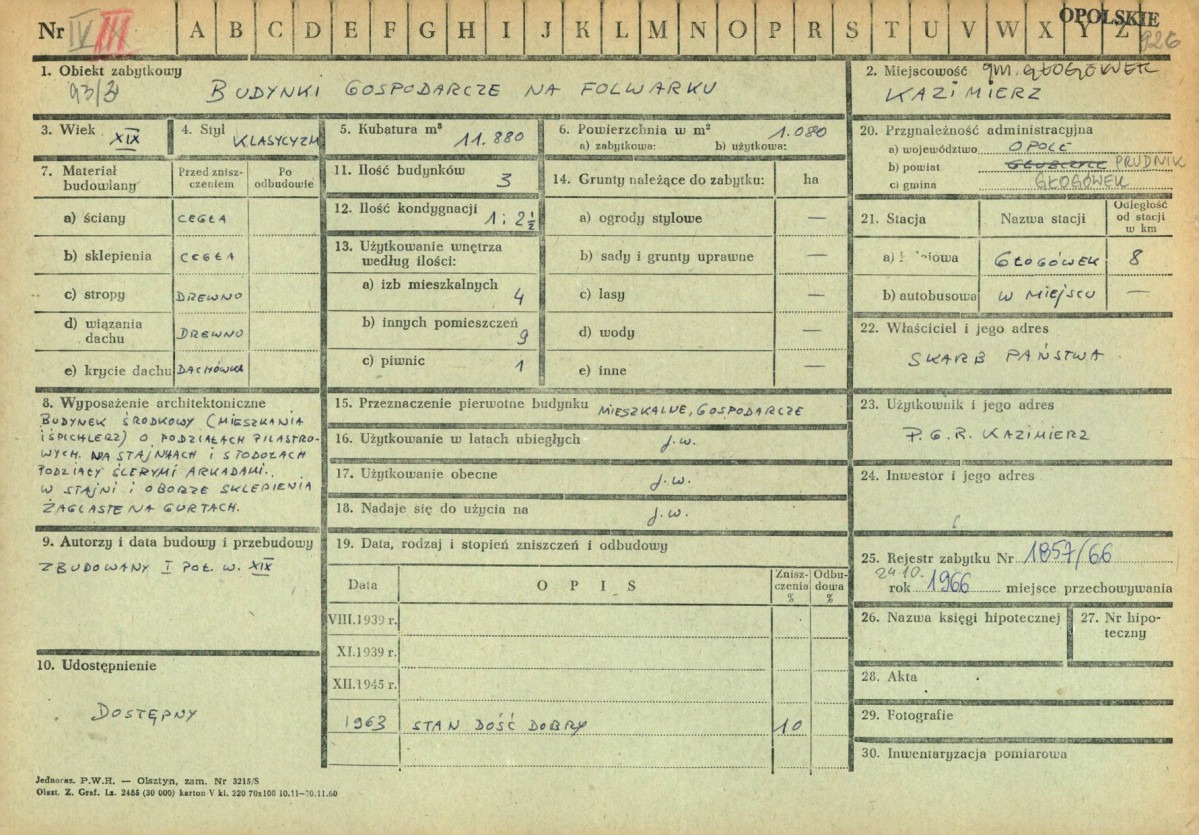 Nr IV III A B C D E F G H I J K L M N O P R S T U V W X Y Z
OPOLSKIE
926
1. Obiekt zabytkowy
93/3
BUDYNKI GOSPODARCZE NA FOLWARKU
2. Miejscowość gm. GŁOGÓWEK
KAZIMIERZ
3. Wiek
XIX
4. Styl
KLASYCYZM
5. Kubatura m³
11.880
6. Powierzchnia w m²
1.080
a) zabytkowa: b) użytkowa:
7. Materiał budowlany
Przed zniszczeniem
Po odbudowie
a) ściany CEGŁA
b) sklepienia CEGŁA
c) stropy DREWNO
d) wiązania dachu DREWNO
e) krycie dachu DACHÓWKA
8. Wyposażenie architektoniczne
BUDYNEK ŚRODKOWY (MIESZKANIA
I ŚPICHLERZ) O PODZIAŁACH PILASTRO-
WYCH. NA STAJNIACH I STODOŁACH
PODZIAŁY ŚLEPYMI ARKADAMI.
W STAJNI I OBORZE SKLEPIENIA
ŻAGLASTE NA GURTACH.
9. Autorzy i data budowy i przebudowy
ZBUDOWANY I POŁ. W. XIX
10. Udostępnienie
DOSTĘPNY
11. Ilość budynków
3
12. Ilość kondygnacji
1 i 2½
13. Użytkowanie wnętrza
według ilości:
a) izb mieszkalnych
4
b) innych pomieszczeń
9
c) piwnic
1
14. Grunty należące do zabytku: ha
a) ogrody stylowe —
b) sady i grunty uprawne —
c) lasy —
d) wody —
e) inne —
15. Przeznaczenie pierwotne budynku MIESZKALNE, GOSPODARCZE
16. Użytkowanie w latach ubiegłych j.w.
17. Użytkowanie obecne j.w.
18. Nadaje się do użycia na j.w.
19. Data, rodzaj i stopień zniszczeń i odbudowy
Data OPIS Zniszczenia % Odbudowa %
VIII.1939 r.
XI.1939 r.
XII.1945 r.
1963 STAN DOŚĆ DOBRY 10
20. Przynależność administracyjna
a) województwo OPOLE
b) powiat GŁUBCZYCE PRUDNIK
c) gmina GŁOGÓWEK
21. Stacja Nazwa stacji Odległość od stacji w km
a) kolejowa GŁOGÓWEK 8
b) autobusowa W MIEJSCU —
22. Właściciel i jego adres
SKARB PAŃSTWA
23. Użytkownik i jego adres
P.G.R. KAZIMIERZ
24. Inwestor i jego adres
25. Rejestr zabytku Nr 1857/66
24.10.
rok 1966 miejsce przechowywania
26. Nazwa księgi hipotecznej
27. Nr hipoteczny
28. Akta
29. Fotografie
30. Inwentaryzacja pomiarowa
Jednoraz. P.W.H. — Olsztyn, zam. Nr 3215/S
Olszt. Z. Graf. Lz. 2485 (30 000) karton V kl. 220 70x100 10.11—30.11.60